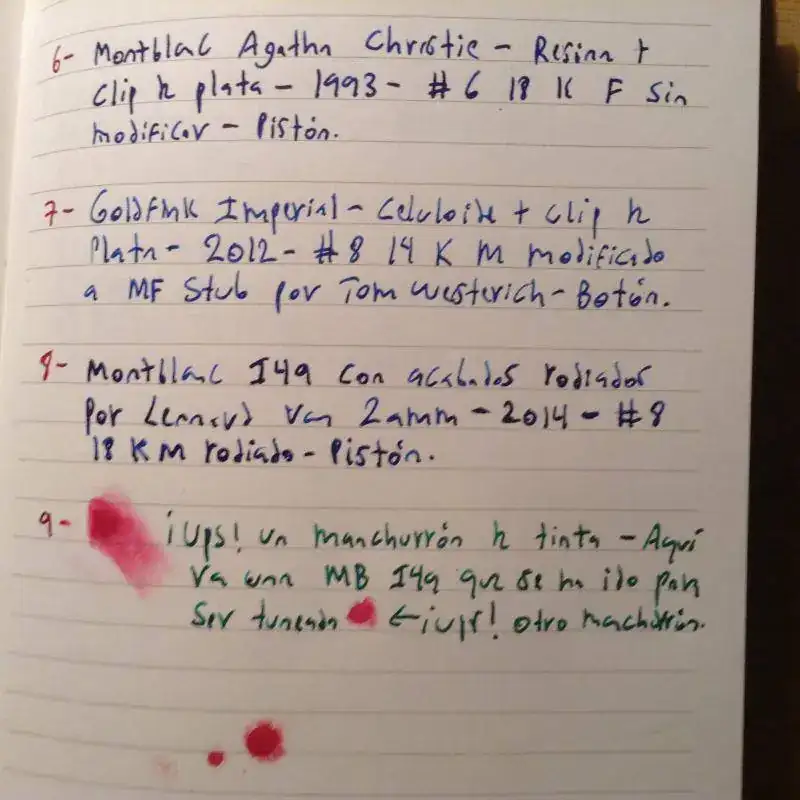 6- Montblanc Agatha Christie - Resina +
Clip de plata - 1993 - # 6 18 K F Sin
modificar - Pistón.
7- Goldfink Imperial - Celuloide + clip de
Plata - 2012 - # 8 14 K M modificado
a MF Stub por Tom Westerich - Botón.
8- Montblanc 149 con acabados rodiados
por Lennard Van Zamm - 2014 - # 9
18 K M rodiado - Pistón.
9- ¡Ups! un manchurrón de tinta - Aquí
va una MB 149 que se ha ido para
Ser tuneada ← ¡ups! otro machurrón.